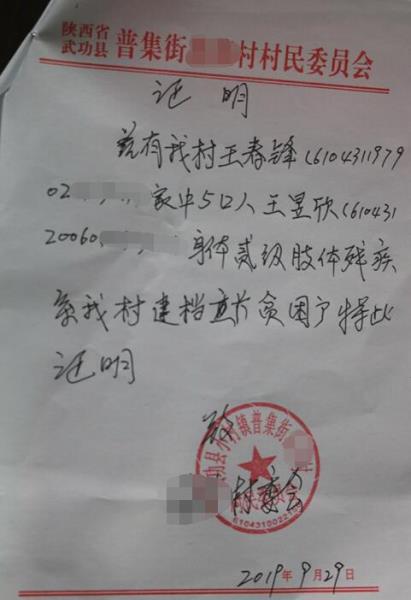 陕西省
武功县 普集街 村村民委员会
证明
兹有我村王春锋(6104311979
02 家中5口人王昱欣(610431
20060 身体贰级肢体残疾
系我村建档立卡贫困户特此
证明
村委会
2019年9月29日